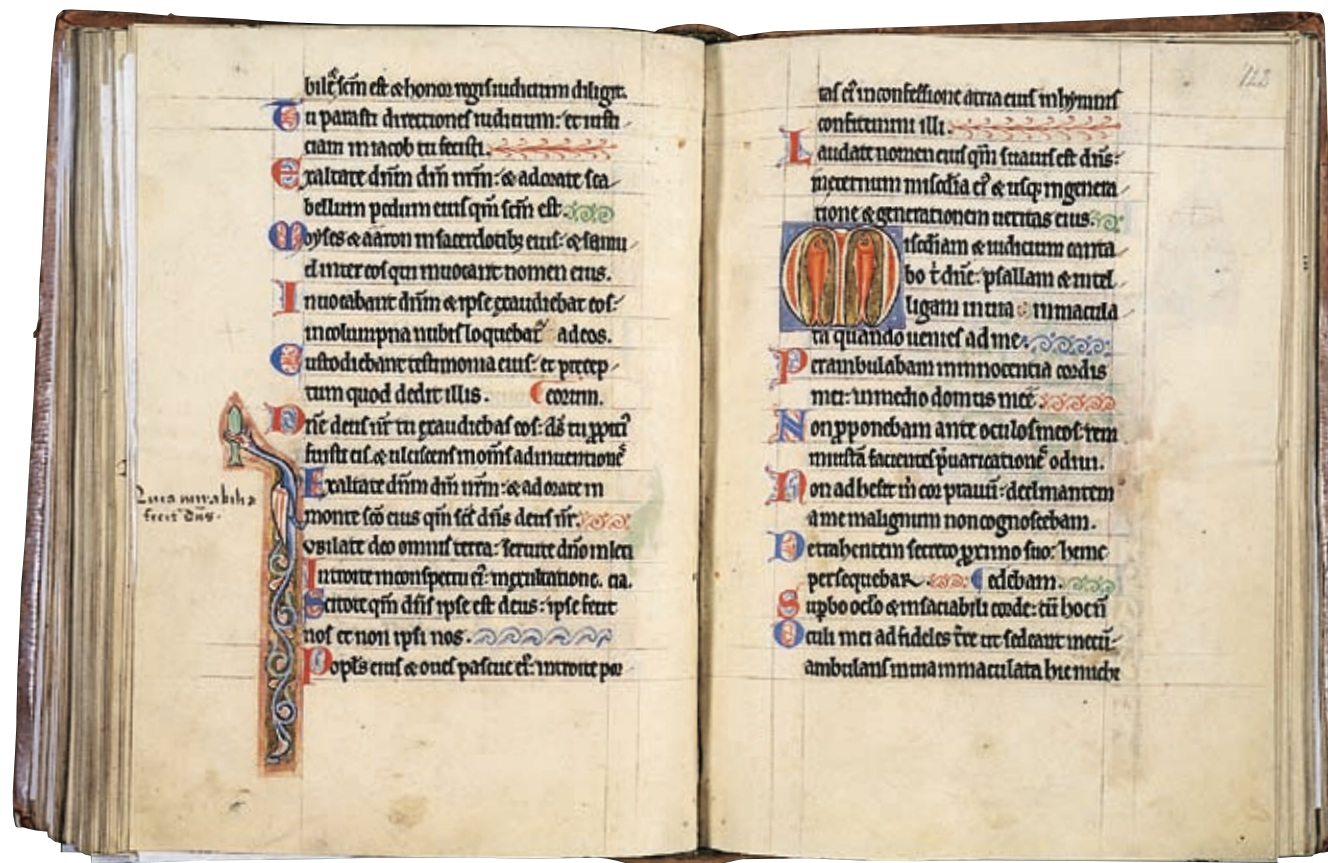 bile. scm est & honor regis iudicium diligit.
Tu parasti directiones iudicium: et iusti
ciam in iacob tu fecisti.
Exaltate dnm dm nrm: & adorate sca
bellum pedum eius qm scm est.
Moyses & aaron in sacerdotibȝ eius: & samu
el inter eos qui inuocant nomen eius.
Inuocabant dnm & ipse exaudiebat eos:
in columpna nubis loquebat ad eos.
Custodiebant testimonia eius: et precep
tum quod dedit illis. eorum.
Dne deus nr tu exaudiebas eos: ds tu ppici
fuisti eis. & ulciscens in oms adinuentione
Exaltate dnm dm nrm: & adorate in
monte sco eius qm scs dns deus nr.
Quia mirabilia
fecit dns.
Iubilate deo omnis terra: seruite dno in leti
Introite in conspectu ei: in exultatione. cia.
Scitote qm dns ipse est deus: ipse fecit
nos et non ipsi nos.
Popls eius & oues pascue ei: introite por
123
tas ei in confessione atria eius in hymnis
confitemini illi.
Laudate nomen eius qm suauis est dns:
in eternum miscdia ei & usqȝ in genera
tione & generationem ueritas eius.
Miscdiam & iudicium canta
bo t dne: psallam & intel
ligam in uia immacula
ta quando uenies ad me.
Perambulabam in innocentia cordis
mei: in medio domus mee.
Non pponebam ante oculos meos rem
iniusta facientes puaricatione odiui.
Non adhesit m cor prauu: declinantem
a me malignum non cognoscebam.
Detrahentem secreto pximo suo: hunc
persequebar. edebam.
Supbo oclo & insaciabili corde: cu hoc n
Oculi mei ad fideles tre ut sedeant mecu:
ambulans in uia immaculata hic michi